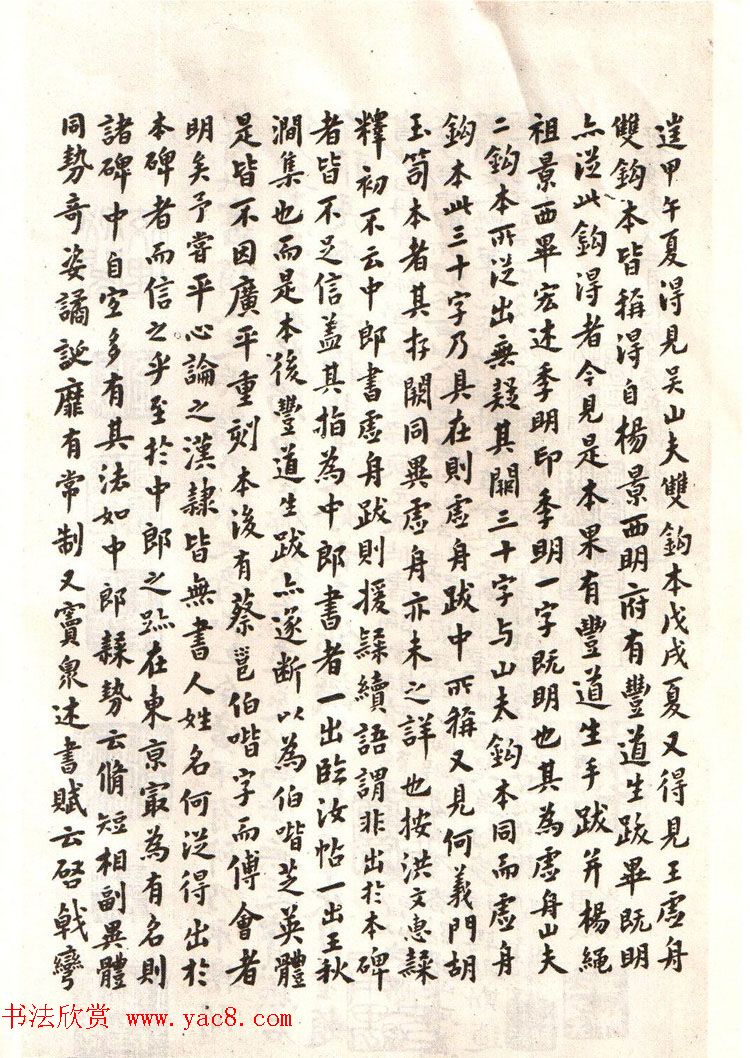 逹甲午夏得見吴山夫雙鈎本戊戌夏又得見王虚舟
雙鈎本皆稱得自楊景西明府有豐道生跋畢既明
亦從此鈎得者今見是本果有豐道生手跋并楊繩
祖景西畢宏述季明印季明一字既明也其為虚舟山夫
二鈎本所從出無疑其闕三十字与山夫鈎本同而虚舟
鈎本此三十字乃具在則虚舟跋中所稱又見何義門胡
玉笥本者其存闕同異虚舟亦未之詳也按洪文惠隸
釋初不云中郎書虚舟跋則援隸續語謂非出於本碑
者皆不足信蓋其指為中郎書者一出臨汝帖一出王秋
澗集也而是本後豐道生跋亦遂断以為伯喈芝英體
是皆不因廣平重刻本後有蔡邕伯喈字而傅會者
明矣予嘗平心論之漢隸皆無書人姓名何從得出於
本碑者而信之乎至於中郎之跡在東京寂為有名則
諸碑中自宜多有其法如中郎隸勢云脩短相副異體
同勢奇姿譎誕靡有常制又竇臮述書賦云啓戟彎
书法欣赏 www.yac8.com